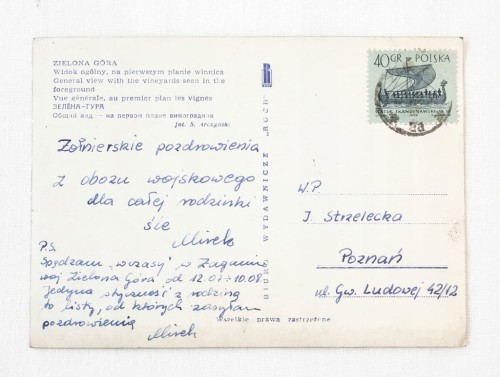 ZIELONA GÓRA
Widok ogólny, na pierwszym planie winnica
General view with the vineyards seen in the
foreground
Vue générale, au premier plan les vignes
ЗЕЛЁНА-ГУРА
Общий вид — на первом плане виноградник
fot. S. Arczyński
Żołnierskie pozdrowienia
z obozu wojskowego
dla całej rodzinki
śle
Mirek
P.S.
Spędzam "wczasy" w Żaganiu
woj Zielona Góra od 12.07÷10.08.
Jedyna styczność z rodziną
to listy, od których zasyłam
pozdrowienia
Mirek
BIURO WYDAWNICZE "RUCH"
Wszelkie prawa zastrzeżone
40 GR POLSKA
W.P.
J. Strzelecka
Poznań
ul. Gw. Ludowej 42/12